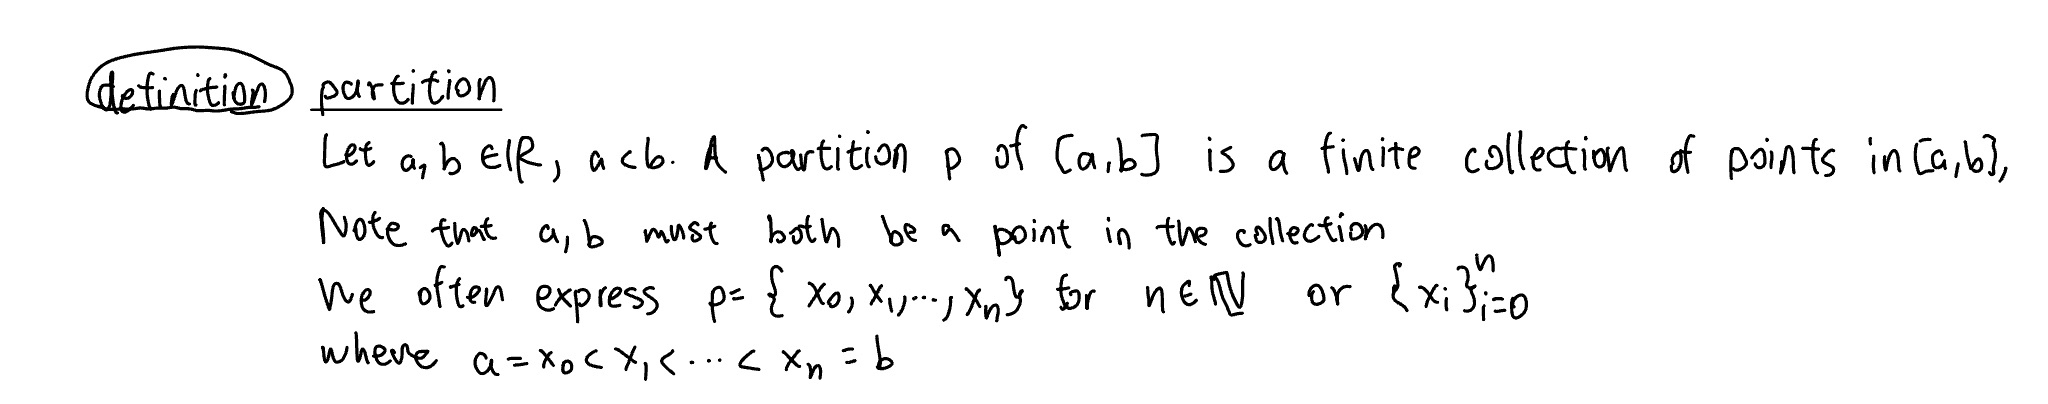 definition partition
Let a, b ∈ ℝ, a < b. A partition p of [a,b] is a finite collection of points in [a,b],
Note that a, b must both be a point in the collection
We often express p = { x₀, x₁, ..., xₙ} for n ∈ ℕ or {xᵢ}ⁿᵢ₌₀
where a = x₀ < x₁ < ... < xₙ = b